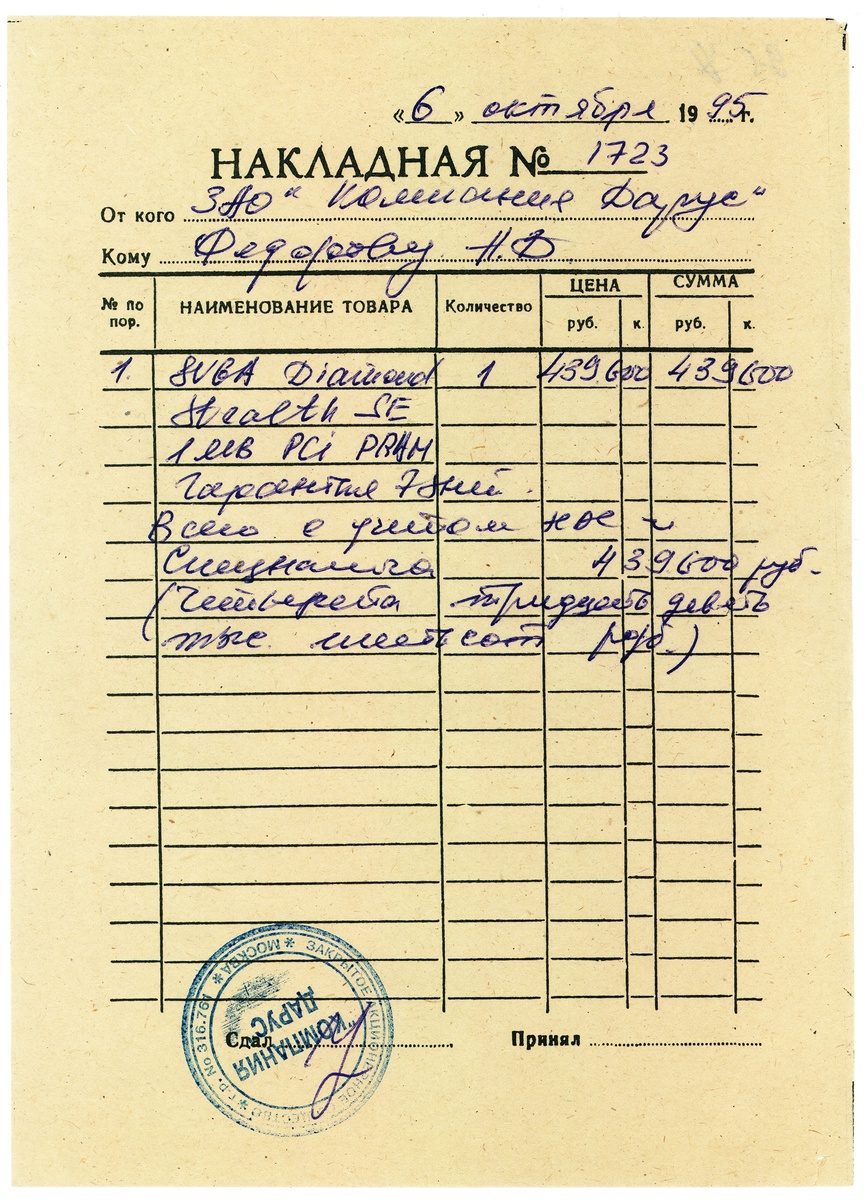 «6» октября 1995г.
НАКЛАДНАЯ № 1723
От кого ЗАО "Компания Дарус"
Кому Федорову Н.Б.
№ по пор. НАИМЕНОВАНИЕ ТОВАРА Количество ЦЕНА СУММА
руб. к. руб. к.
1. SVGA Diamond 1 439600 439600
Stealth SE
1MB PCI DRAM
Гарантия 7 дней.
Всего с учётом НДС и
Спецналога 439600 руб.
(Четыреста тридцать девять
тыс. шестьсот руб.)
Сдал Принял
ЗАКРЫТОЕ АКЦИОНЕРНОЕ ОБЩЕСТВО * Г.Р. No 316.761 * МОСКВА *
"КОМПАНИЯ
ДАРУС"